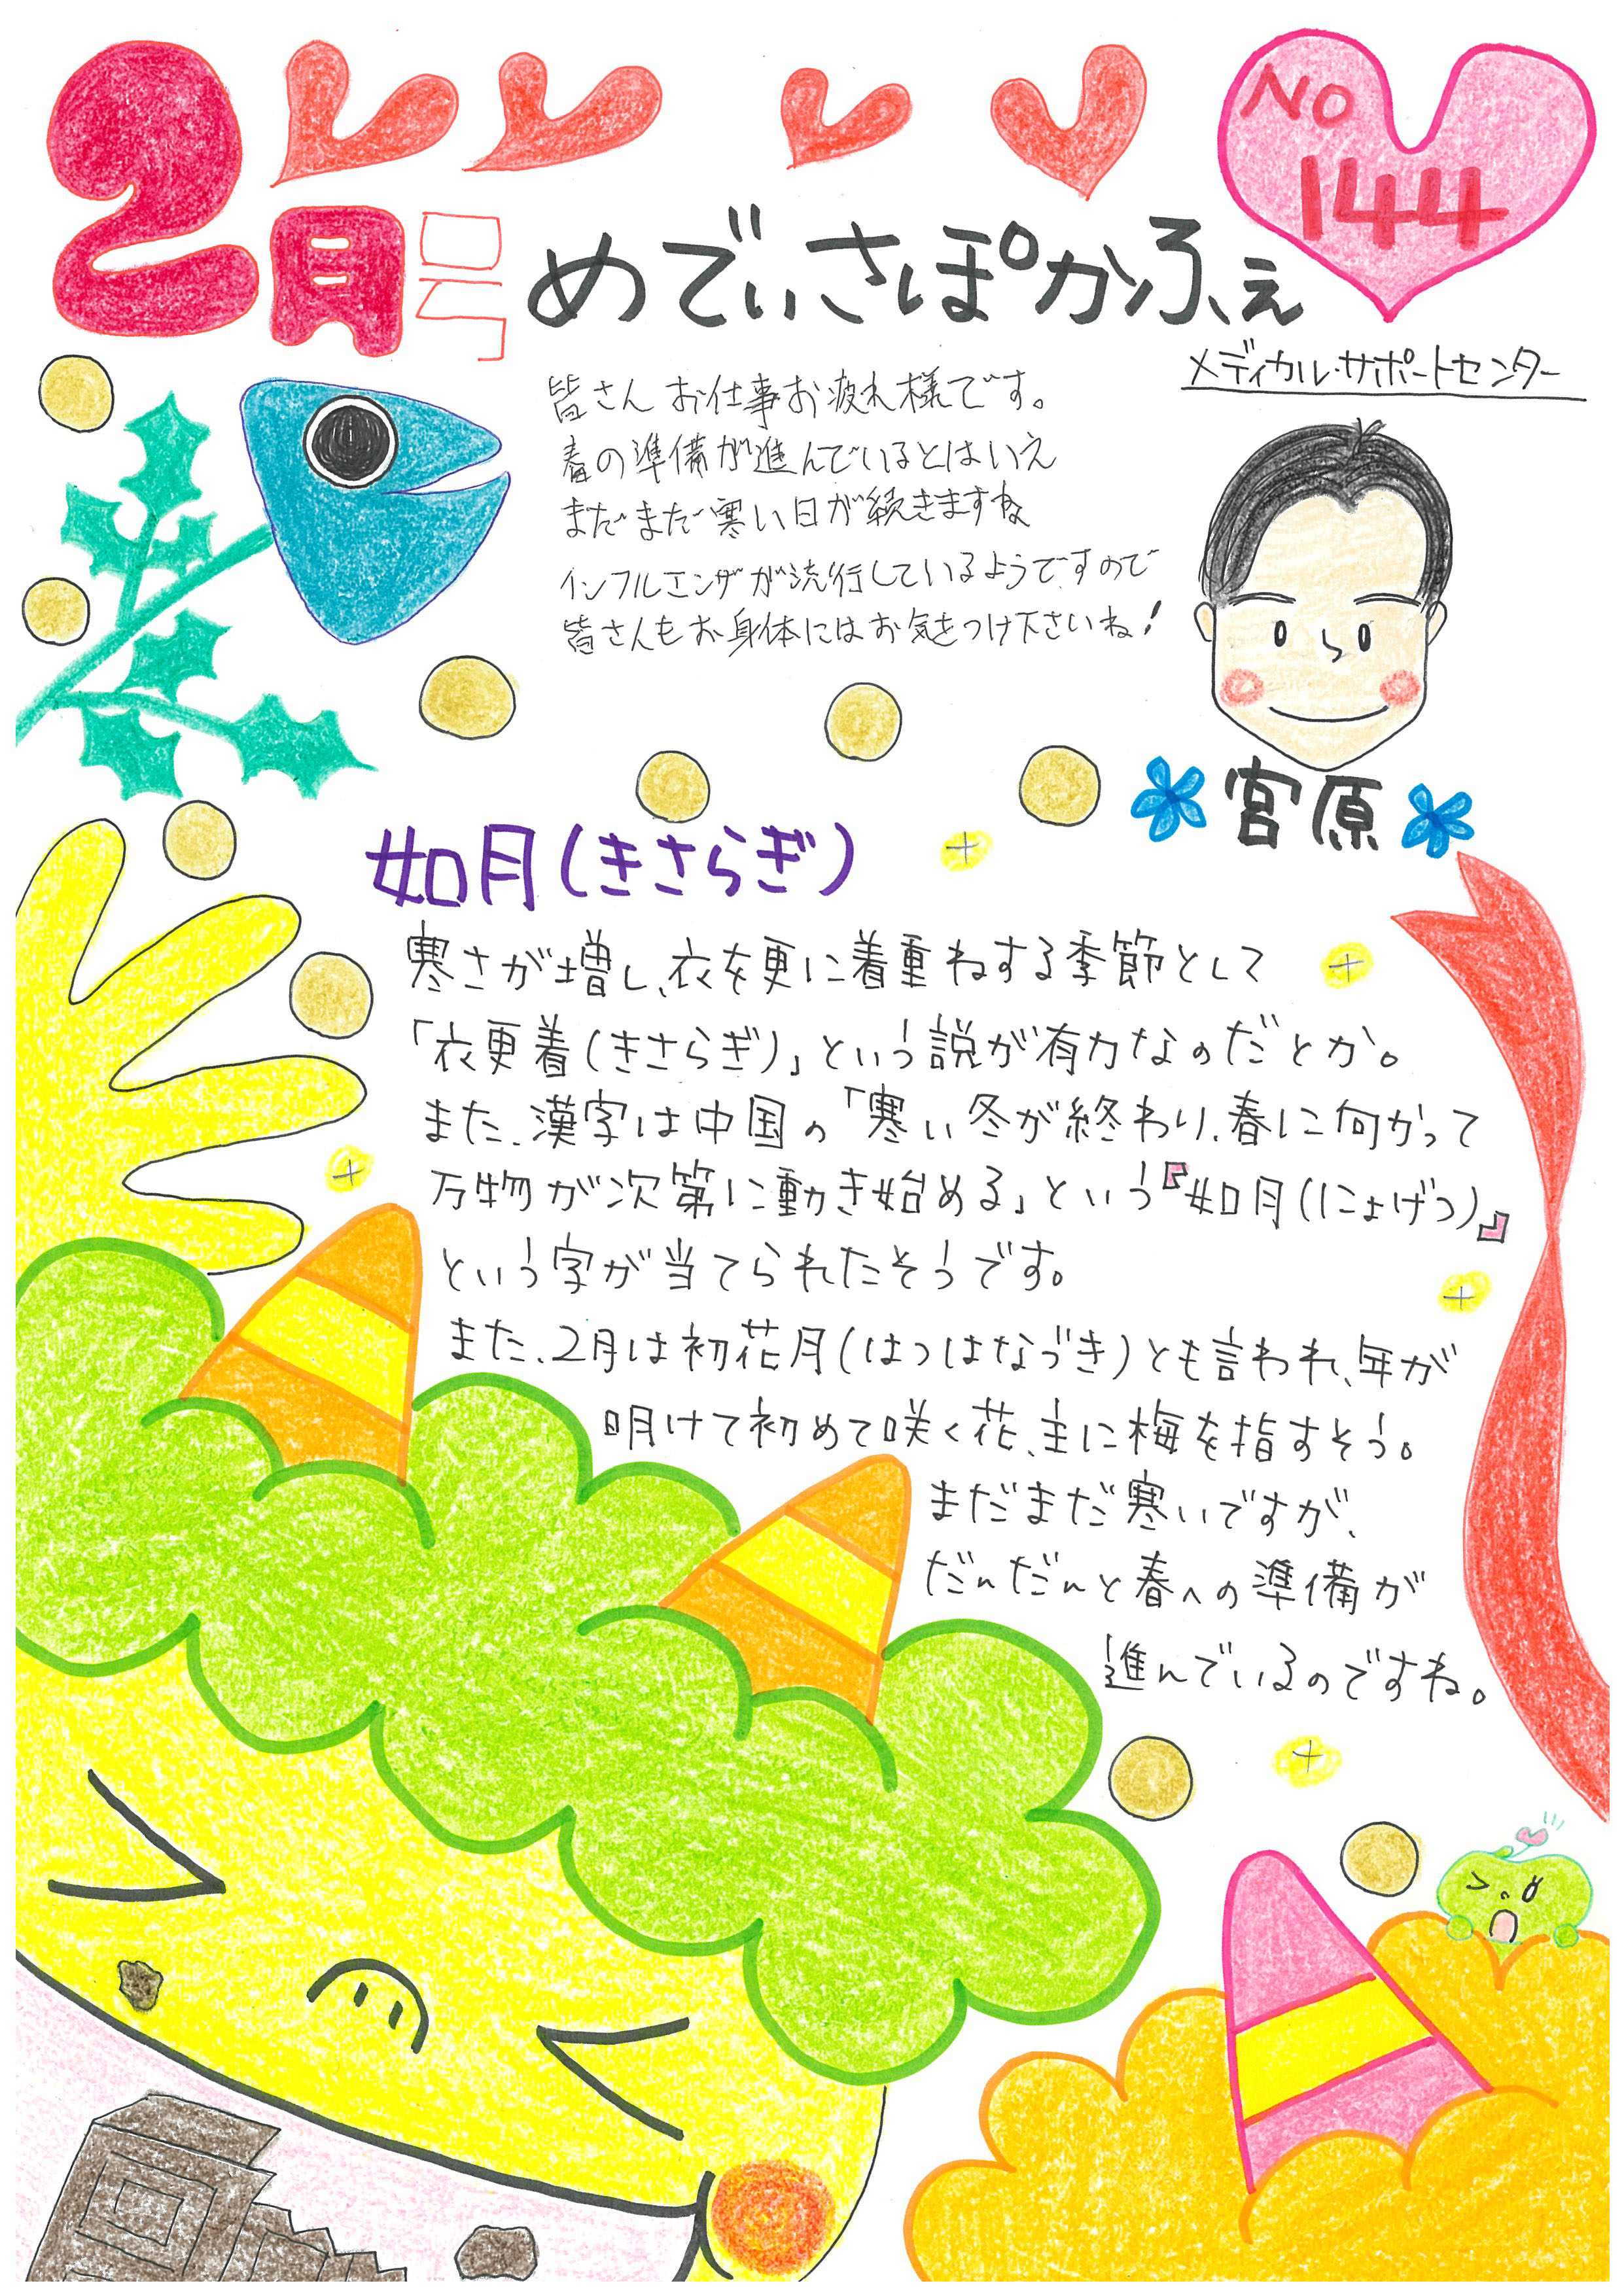 2月号
No 144
めでぃさぽかふぇ
メディカル・サポートセンター
皆さんお仕事お疲れ様です。
春の準備が進んでいるとはいえ
まだまだ寒い日が続きますね
インフルエンザが流行しているようですので
皆さんもお身体にはお気をつけ下さいね!
宮原
如月(きさらぎ)
寒さが増し、衣を更に着重ねする季節として
「衣更着(きさらぎ)」という説が有力なのだとか。
また、漢字は中国の「寒い冬が終わり、春に向かって
万物が次第に動き始める」という『如月(にょげつ)』
という字が当てられたそうです。
また、2月は初花月(はつはなづき)とも言われ、年が
明けて初めて咲く花、主に梅を指すそう。
まだまだ寒いですが、
だんだんと春への準備が
進んでいるのですね。